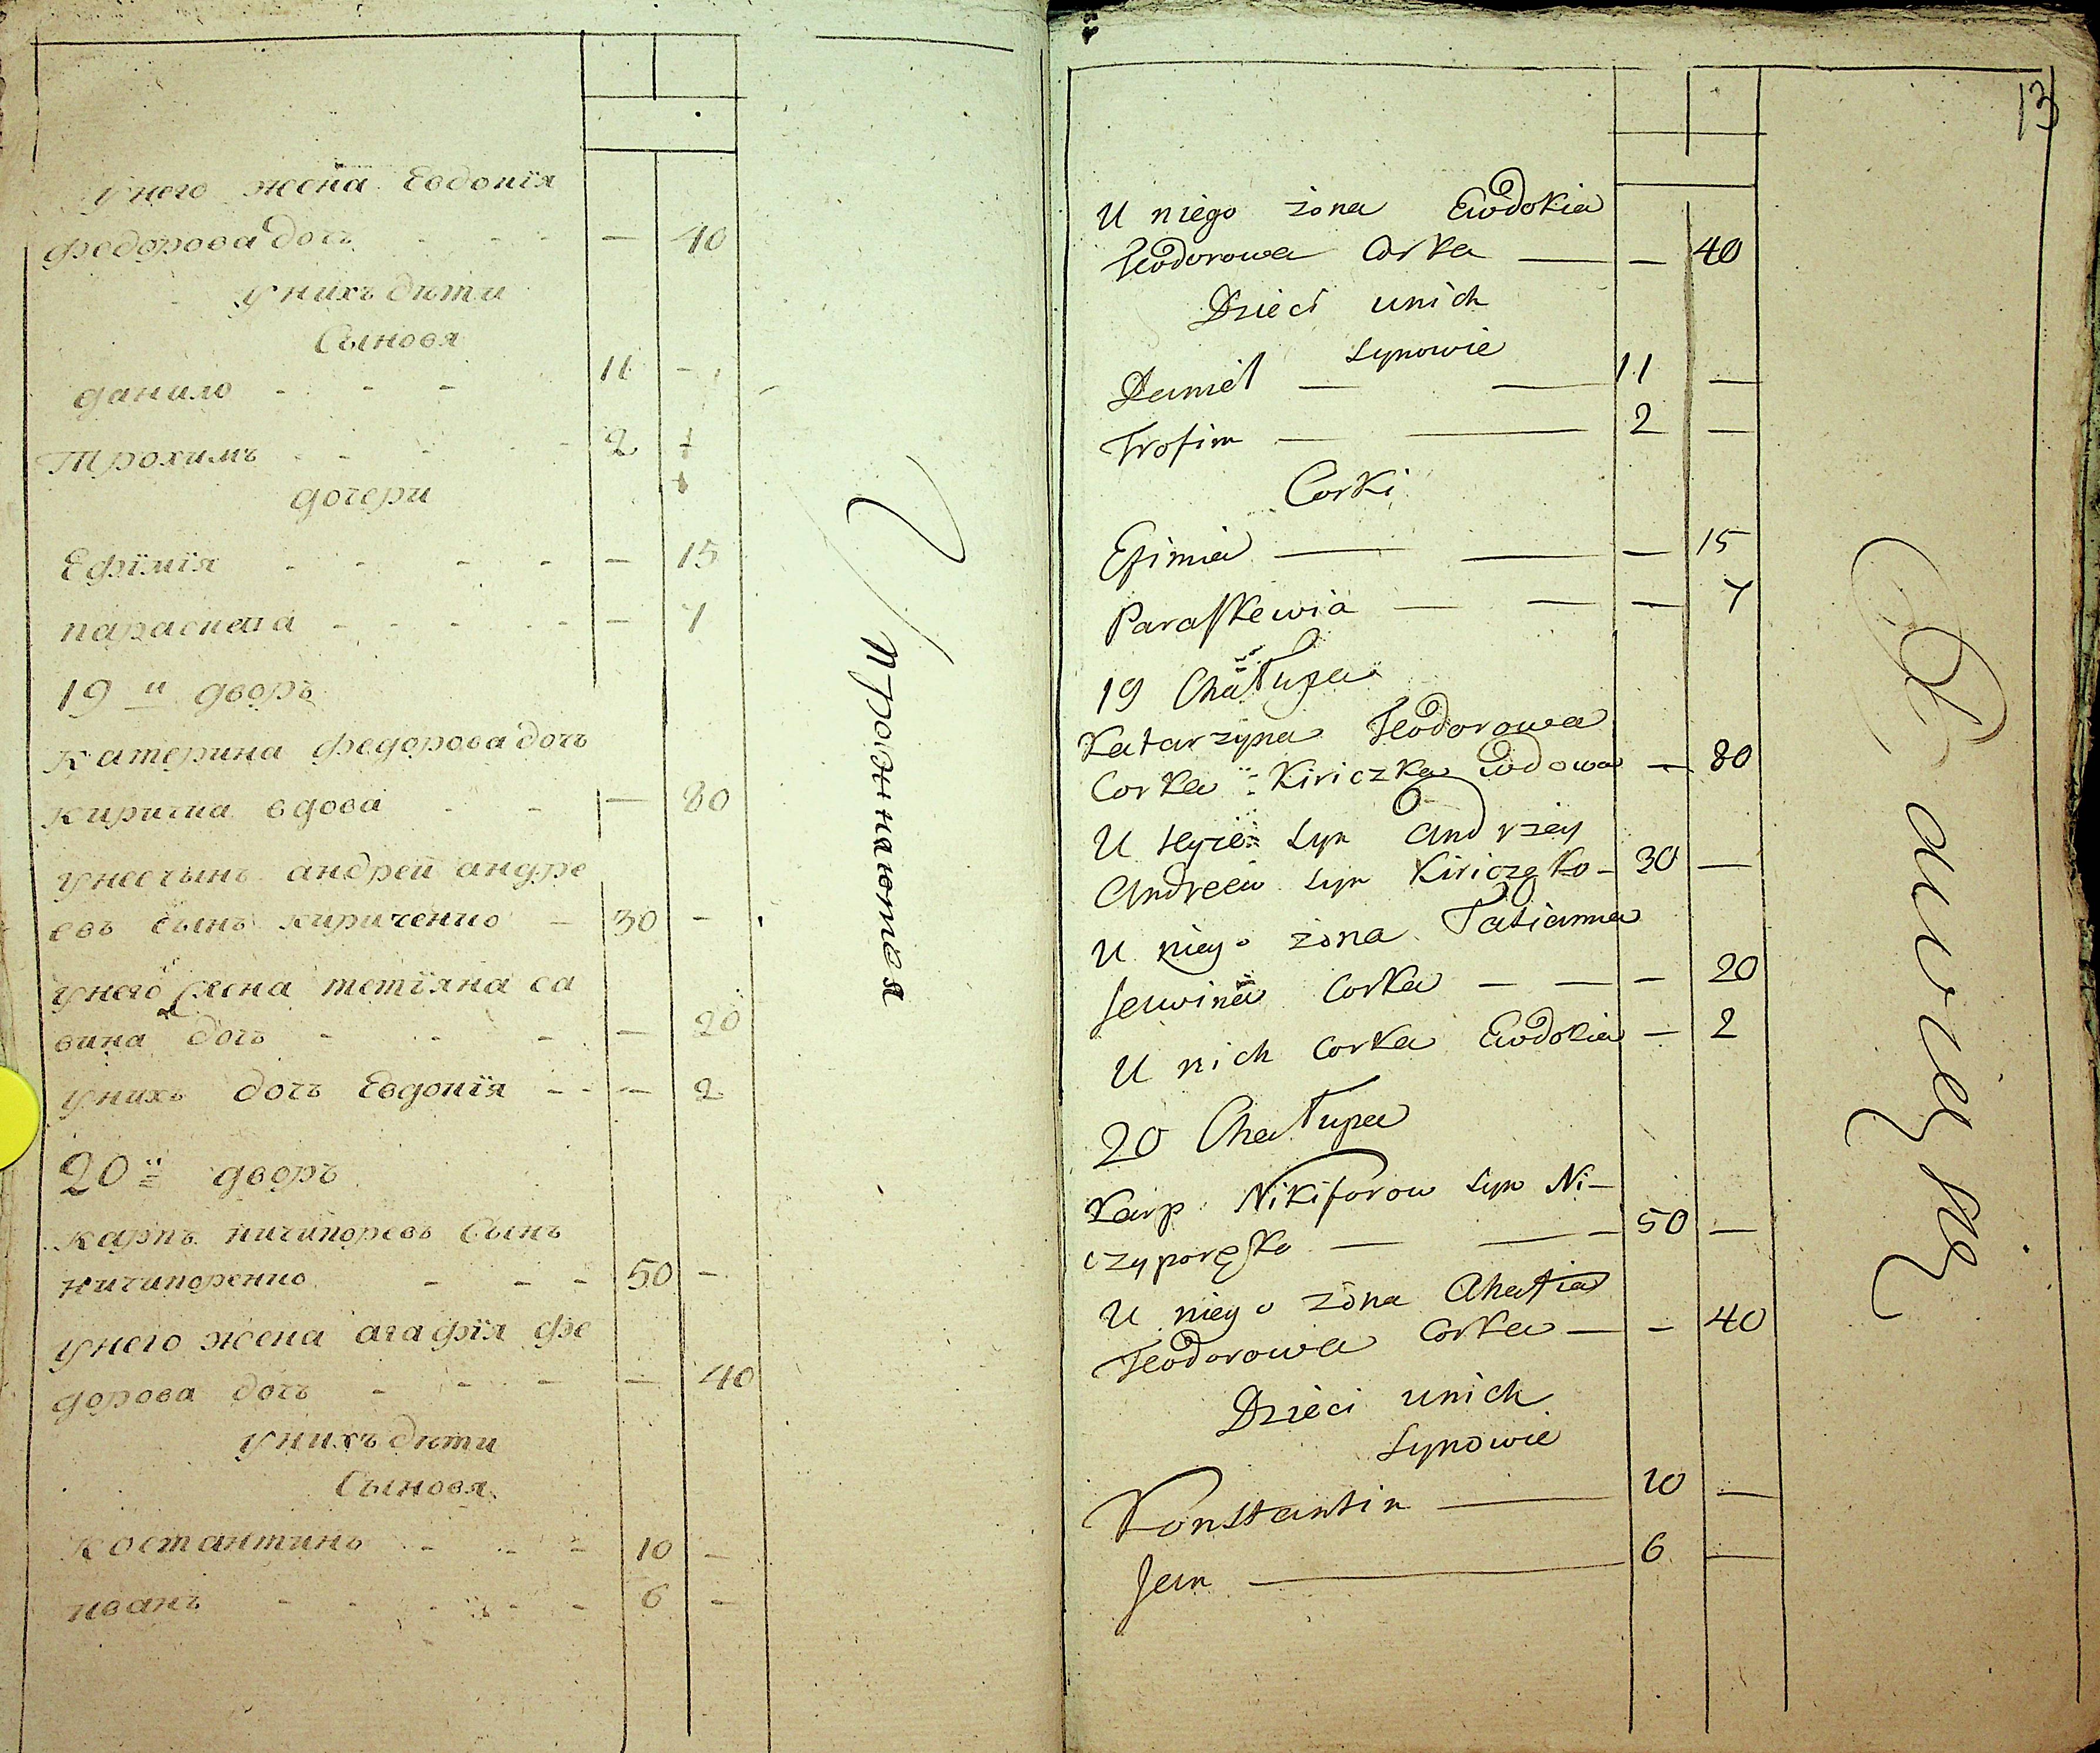 у него жена Евдокїя
федорова дочь - - - — 40
у нихъ дѣти
Сыновя
данило - - - 11 -
Трохимъ - - - - 2
дочери
Ефїмїя - - - - — 15
параскева - - - - - — 7
19 й дворъ
Катерина федорова дочь
киричка вдова - - — 80
у нее сынъ андрей андре
евъ сынъ кириченко - 30 -
у него жена тетїяна са
вина дочь - - - — 20
у нихъ дочь Евдокїя - - — 2
20 й дворъ
карпъ ничипоревъ Сынъ
ничипоренко - - - 50 -
у него жена агафїя фе
дорова дочь - - - — 40
у нихъ дѣти
Сыновя
Костантинъ - - - 10 -
иванъ - - - - - - 6 -
Пройннаются
13
U niego żona Ewdokia
Teodorowa Corka — — 40
Dzieci unich
Synowie
Daniel — — 11 —
Trofim — — 2 —
Corki
Efimia — — — 15
Paraskewia — — — 7
19 Chałupa
Katarzyna Teodorowa
Corka Kiriczka wdowa — 80
U teyże Syn Andrzey
Andreew Syn Kiriczęko - 30 —
U niego żona Tatianna
Sawina Corka — — — 20
U nich Corka Ewdokia — 2
20 Chałupa
Karp Nikiforow Syn Ni-
czyporęko — — - 50 —
U niego żona Ahafia
Teodorowa Corka — - 40
Dzieci unich
Synowie
Konstantin — 10 —
Jan — 6 —
Bawię się